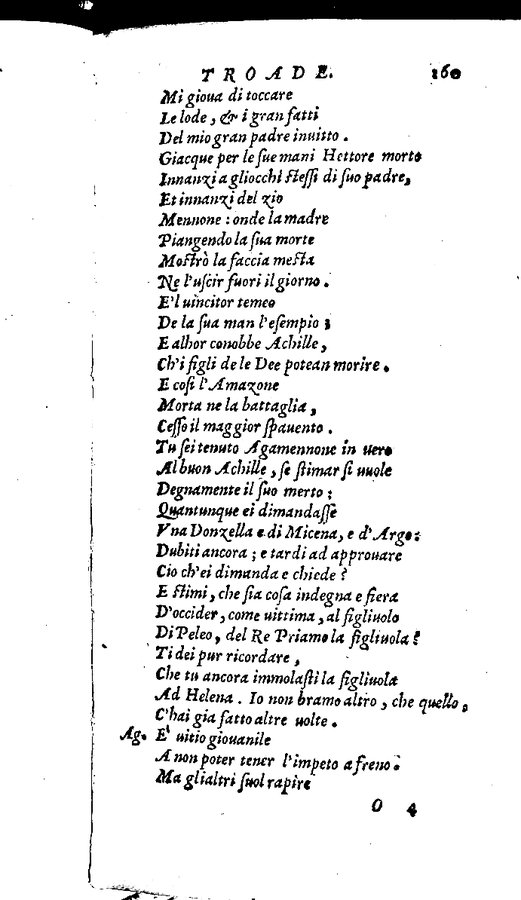 TROADE. 160
Mi gioua di toccare
Le lode, & i gran fatti
Del mio gran padre inuitto.
Giacque per le sue mani Hettore morto
Innanzi a gliocchi steſſi di ſuo padre,
Et innanzi del zio
Mennone: onde la madre
Piangendo la ſua morte
Moſtrò la faccia meſta
Ne l'uſcir fuori il giorno.
E'l uincitor temeo
De la ſua man l'eſempio;
E alhor conobbe Achille,
Ch'i figli de le Dee potean morire.
E coſi l'Amazone
Morta ne la battaglia,
Ceſſo il maggior ſpauento.
Tu ſei tenuto Agamennone in uero
Al buon Achille, ſe ſtimar ſi uuole
Degnamente il ſuo merto;
Quantunque ei dimandaſſe
Vna Donzella e di Micena, e d'Argo:
Dubiti ancora; e tardi ad approuare
Cio ch'ei dimanda e chiede?
E ſtimi, che ſia coſa indegna e fiera
D'occider, come uittima, al figliuolo
Di Peleo, del Re Priamo la figliuola?
Ti dei pur ricordare,
Che tu ancora immolaſti la figliuola
Ad Helena. Io non bramo altro, che quello,
C'hai gia fatto altre uolte.
Ag. E' uitio giouanile
A non poter tener l'impeto a freno:
Ma glialtri ſuol rapire
O 4